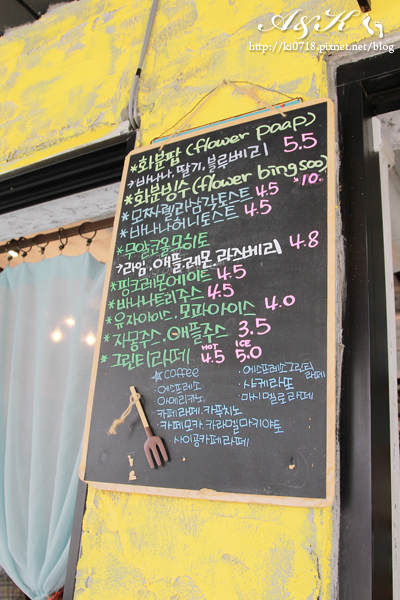 A&K
http://ki0718.pixnet.net/blog
*화분팝 (flower paap)
→바나나, 딸기, 블루베리 5.5
*화분빙수 (flower bingsoo)
*모짜렐라삼각토스트 4.5 *10.
*바나나허니토스트 4.5
*무알코올모히토
→라임.애플.레몬.라즈베리 4.8
*핑크레몬에이트 4.5
*바나나트리주스 4.5
*유자아이스.모과아이스 4.0
*자몽주스.애플주스 3.5
*그린티라떼 HOT 4.5 ICE 5.0
☆coffee
·에스프레소 ·에스프레소그린티라떼
·아메리카노 ·샤케라또
·카페라떼.카푸치노 ·마시멜로라떼
·카페모카.카라멜마키아토
·사이공카페라떼